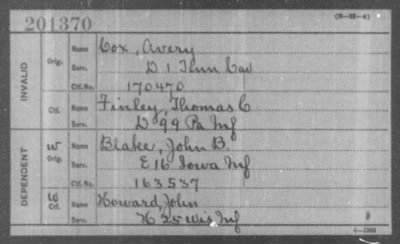 201370 (3-25-4)
INVALID Orig. Name Cox, Avery
Serv. D 1 Tenn Cav
Ctf. No. 170470
Ctf. Name Finley, Thomas C
Serv. D 99 Pa Inf
DEPENDENT W Orig. Name Blake, John B.
Serv. E 16 Iowa Inf
Ctf. No. 163537
W Ctf. Name Howard, John
Serv. K 25 Wis Inf